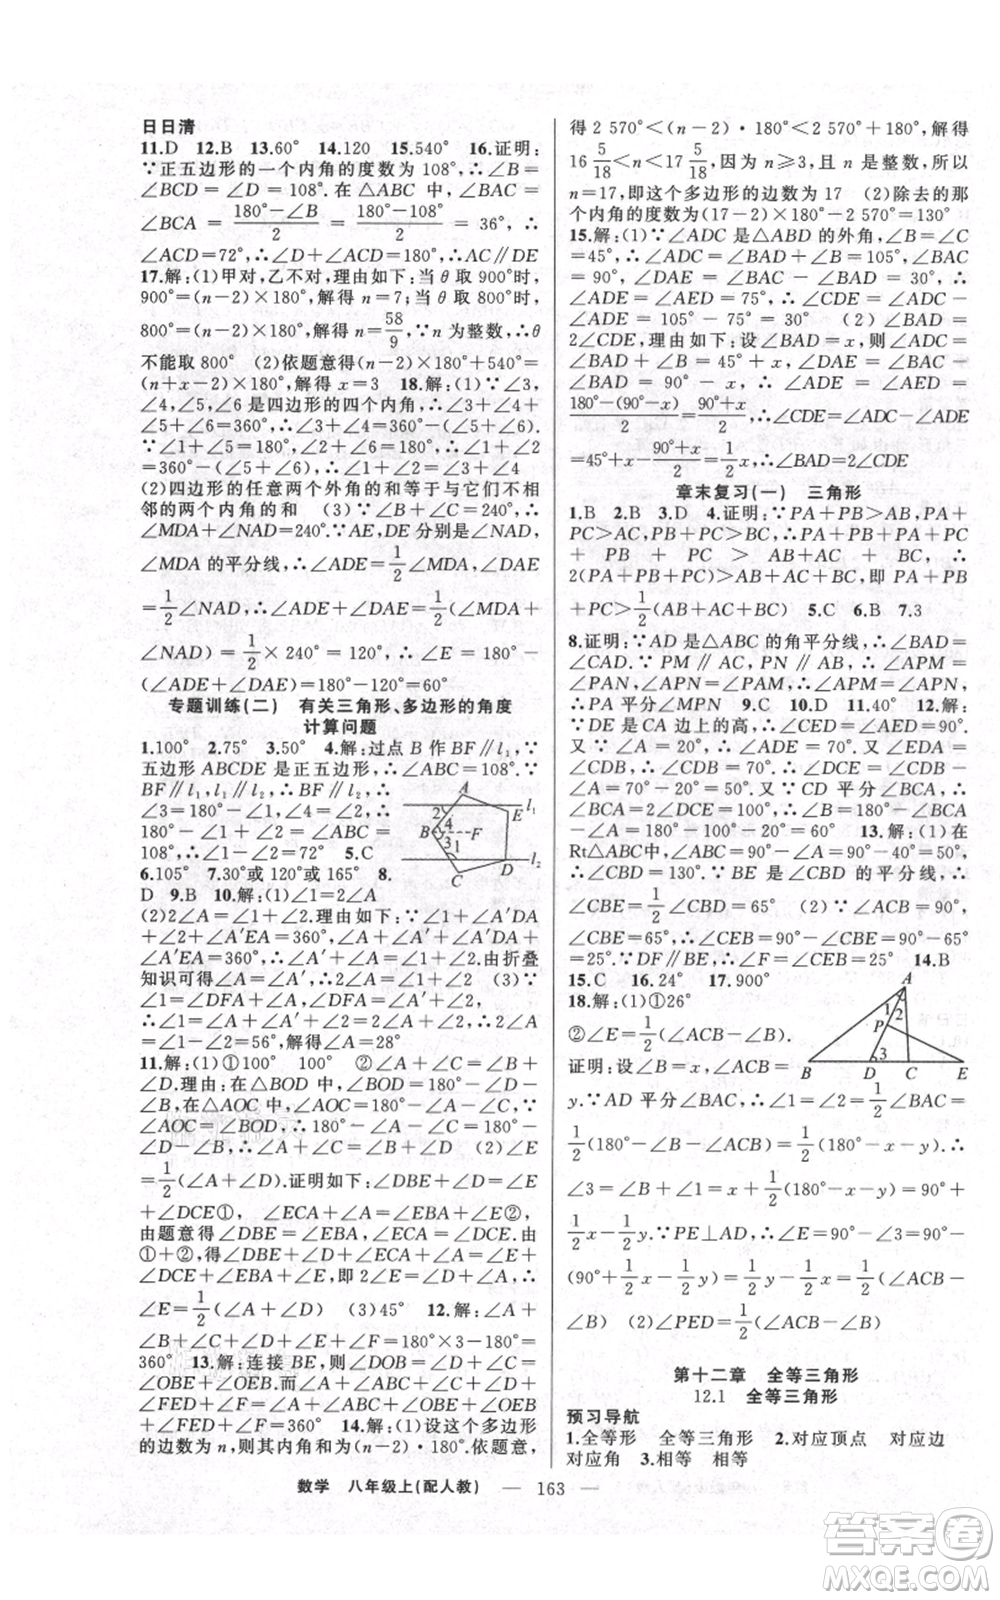 日日清
11.D 12.B 13.60° 14.120 15.540° 16.证明:
∵正五边形的一个内角的度数为 108°,∴∠B=
∠BCD=∠D=108°. 在△ABC 中,∠BAC=
∠BCA=(180°-∠B)/2=(180°-108°)/2=36°,∴
∠ACD=72°,∴∠D+∠ACD=180°,∴AC∥DE
17.解:(1)甲对,乙不对,理由如下:当 θ 取 900°时,
900°=(n-2)×180°,解得 n=7;当 θ 取 800°时,
800°=(n-2)×180°,解得 n=58/9,∵n 为整数,∴θ
不能取 800° (2)依题意得(n-2)×180°+540°=
(n+x-2)×180°,解得 x=3 18.解:(1)∵∠3,
∠4,∠5,∠6 是四边形的四个内角,∴∠3+∠4+
∠5+∠6=360°,∴∠3+∠4=360°-(∠5+∠6).
∵∠1+∠5=180°,∠2+∠6=180°,∴∠1+∠2=
360°-(∠5+∠6),∴∠1+∠2=∠3+∠4
(2)四边形的任意两个外角的和等于与它们不相
邻的两个内角的和 (3)∵∠B+∠C=240°,∴
∠MDA+∠NAD=240°.∵AE,DE 分别是∠NAD,
∠MDA 的平分线,∴∠ADE=1/2∠MDA,∠DAE
=1/2∠NAD,∴∠ADE+∠DAE=1/2(∠MDA+
∠NAD)=1/2×240°=120°,∴∠E=180°-
(∠ADE+∠DAE)=180°-120°=60°
专题训练(二) 有关三角形、多边形的角度
计算问题
1.100° 2.75° 3.50° 4.解:过点 B 作 BF∥l₁,∵
五边形 ABCDE 是正五边形,∴∠ABC=108°.∵
BF∥l₁,l₁∥l₂,∴BF∥l₂,∴
∠3=180°-∠1,∠4=∠2,∴
180°-∠1+∠2=∠ABC=
108°,∴∠1-∠2=72° 5.C
6.105° 7.30°或 120°或 165° 8.
A
2
l₁
E
4
B
F
3
1
l₂
C
D
D 9.B 10.解:(1)∠1=2∠A
(2)2∠A=∠1+∠2 理由如下:∵∠1+∠A′DA
+∠2+∠A′EA=360°,∠A+∠A′+∠A′DA+
∠A′EA=360°,∴∠A′+∠A=∠1+∠2,由折叠
知识可得∠A=∠A′,∴2∠A=∠1+∠2 (3)∵
∠1=∠DFA+∠A,∠DFA=∠A′+∠2,∴
∠1=∠A+∠A′+∠2=2∠A+∠2,∴2∠A=
∠1-∠2=56°,解得∠A=28°
11.解:(1)①100° 100° ②∠A+∠C=∠B+
∠D.理由:在△BOD 中,∠BOD=180°-∠B-
∠D,在△AOC 中,∠AOC=180°-∠A-∠C,∵
∠AOC=∠BOD,∴180°-∠A-∠C=180°-
∠B-∠D,∴∠A+∠C=∠B+∠D (2)∠E
=1/2(∠A+∠D).证明如下:∠DBE+∠D=∠E
+∠DCE①, ∠ECA+∠A=∠EBA+∠E②,
由题意得∠DBE=∠EBA,∠ECA=∠DCE.由
①+②,得∠DBE+∠D+∠ECA+∠A=∠E+
∠DCE+∠EBA+∠E,即 2∠E=∠A+∠D,∴
∠E=1/2(∠A+∠D) (3)45° 12.解:∠A+
∠B+∠C+∠D+∠E+∠F=180°×3-180°=
360° 13.解:连接 BE,则∠C+∠D=∠OBE+
∠OEB.而∠A+∠ABC+∠OBE+∠OEB+
∠FED+∠F=360°,∴∠A+∠ABC+∠C+∠D
+∠FED+∠F=360° 14.解:(1)设这个多边形
的边数为 n,则其内角和为(n-2)·180°.依题意,
得 2 570°<(n-2)·180°<2 570°+180°,解得
16 5/18<n<17 5/18,因为 n≥3,且 n 是整数,所以
n=17,即这个多边形的边数为 17 (2)除去的那
个内角的度数为(17-2)×180°-2 570°=130°
15.解:(1)∵∠ADC 是△ABD 的外角,∠B=∠C
=45°,∴∠ADC=∠B+∠BAD=105°,∵∠BAC
=90°,∠DAE=∠BAC-∠BAD=30°,∴
∠ADE=∠AED=75°,∴∠CDE=∠ADC-
∠ADE=105°-75°=30° (2)∠BAD=
2∠CDE,理由如下:设∠BAD=x,则∠ADC=∠B
+∠BAD=45°+x,∠DAE=∠BAC-
∠BAD=90°-x,∴∠ADE=∠AED=
(180°-(90°-x))/2=(90°+x)/2,∴∠CDE=∠ADC-∠ADE
=45°+x-(90°+x)/2=1/2x,∴∠BAD=2∠CDE
章末复习(一) 三角形
1.B 2.B 3.D 4.证明:∵PA+PB>AB,PA+
PC>AC,PB+PC>BC,∴PA+PB+PA+PC
+PB+PC>AB+AC+BC,∴
2(PA+PB+PC)>AB+AC+BC,即 PA+PB
+PC>1/2(AB+AC+BC) 5.C 6.B 7.3
8.证明:∵AD 是△ABC 的角平分线,∴∠BAD=
∠CAD.∵PM∥AC,PN∥AB,∴∠APM=
∠CAD,∠APN=∠BAD,∴∠APM=∠APN,
∴PA 平分∠MPN 9.C 10.D 11.40° 12.解:
∵DE 是 CA 边上的高,∴∠CED=∠AED=90°.
∵∠A=20°,∴∠A=70°.∴∠EDA=
∠CDB,∴∠CDB=70°,∴∠CDE=90°-
∠A=70°-20°=50°.又∵CD 平分∠BCA,∴
∠BCA=2∠DCE=40°,∴∠B=180°-∠BCA
-∠A=180°-40°-20°=60° 13.解:(1)在
Rt△ABC 中,∠A=90°-∠B=90°-40°=50°,∴
∠CBD=130°.∵BE 是∠CBD 的平分线,∴
∠CBE=1/2∠CBD=65° (2)∵∠ACB=90°,
∠CBE=65°,∴∠CEB=90°-∠CBE=90°-65°
=25°.∵DF∥BE,∴∠F=∠CEB=25° 14.B
15.C 16.24° 17.900°
18.解:(1)①26°
②∠E=1/2(∠ACB-∠B).
证明:设∠B=x,∠ACB=
A
1
2
P
3
B
D
C
E
y.∵AD 平分∠BAC,∴∠1=∠2=1/2∠BAC=
1/2(180°-∠B-∠ACB)=1/2(180°-x-y).∴
∠3=∠B+∠1=x+1/2(180°-x-y)=90°+
1/2x-1/2y.∵PE⊥AD,∴∠E=90°-∠3=90°-
(90°+1/2x-1/2y)=1/2(y-x)=1/2(∠ACB-
∠B) (2)∠PED=1/2(∠ACB-∠B)
第十二章 全等三角形
12.1 全等三角形
预习导航
1.全等形 全等三角形 2.对应顶点 对应边
对应角 3.相等 相等
数学 八年级上(配人教) — 163 —
答案卷
MXQE.COM